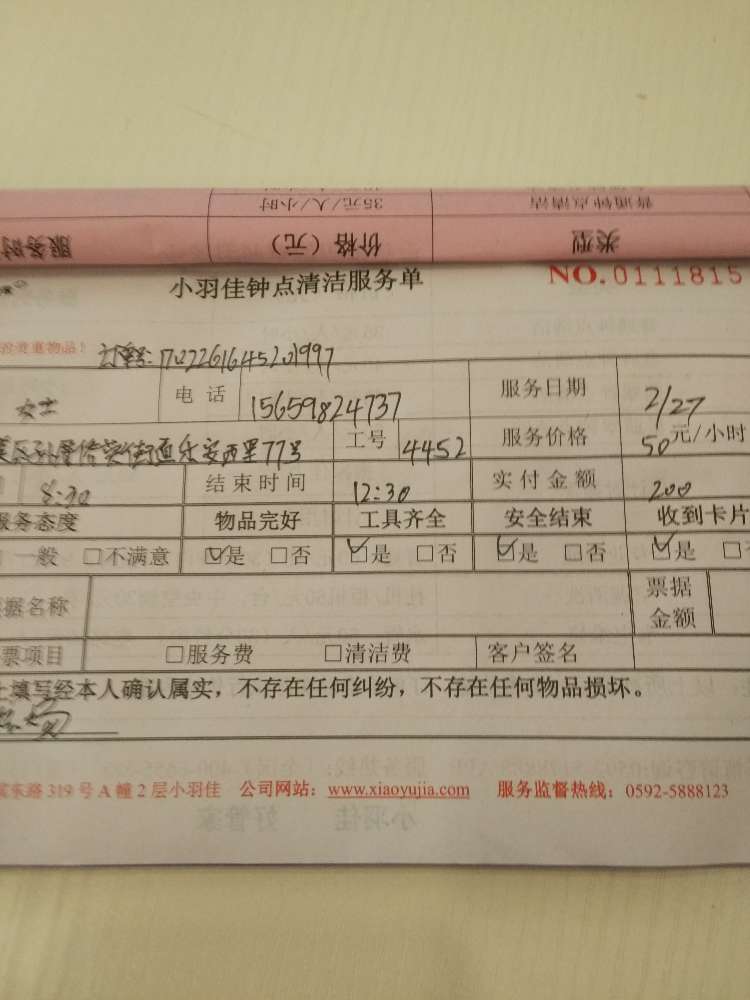 普通钟点清洁 35元/人/小时
类型 价格（元） 服务时
小羽佳钟点清洁服务单 NO.0111815
贵重物品！ 订单号:1702261645201997
女士 电话 15659824737 服务日期 2/27
街道乐安西里77号 工号 4452 服务价格 50元/小时
8:30 结束时间 12:30 实付金额 200
服务态度 物品完好 工具齐全 安全结束 收到卡片
一般 □不满意 ☑是 □否 ☑是 □否 ☑是 □否 ☑是 □
据名称 票据金额
票项目 □服务费 □清洁费 客户签名
上填写经本人确认属实，不存在任何纠纷，不存在任何物品损坏。
东路319号A幢2层小羽佳 公司网站：www.xiaoyujia.com 服务监督热线：0592-5888123